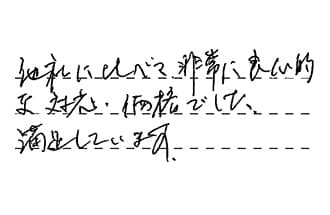 他社にくらべて非常に良心的
な対応・価格でした。
満足しています。